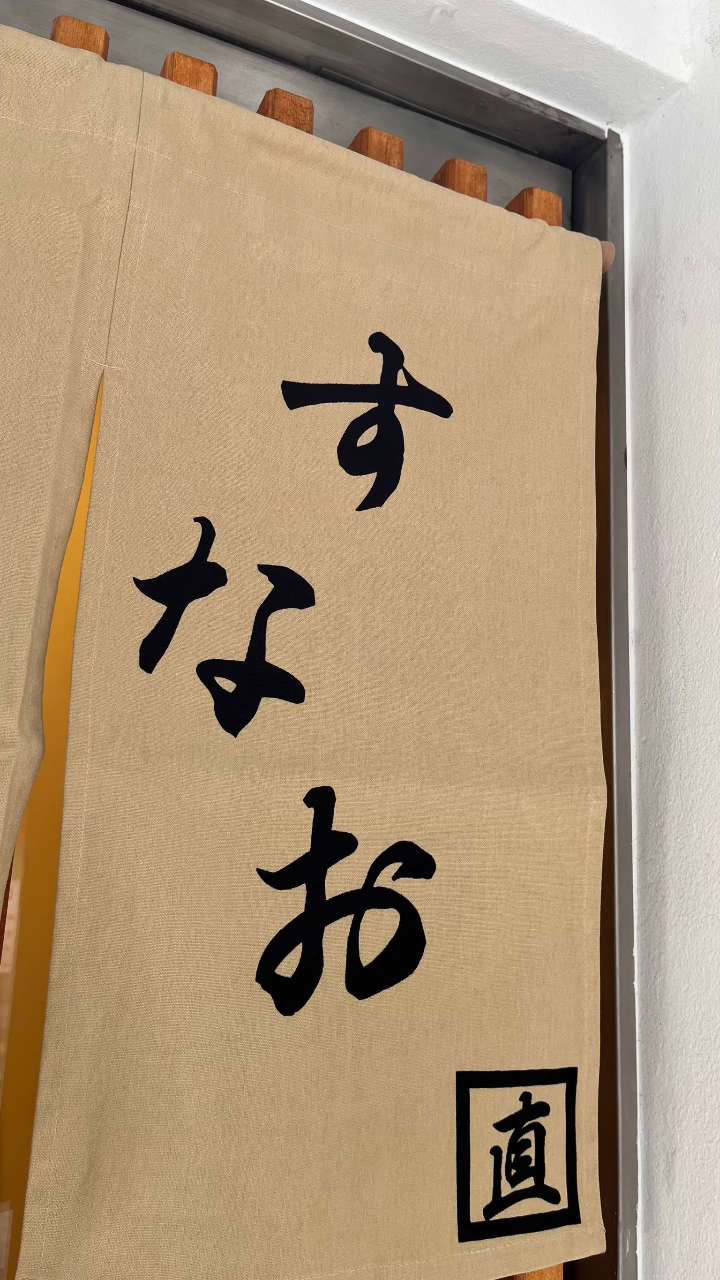 すなお
直